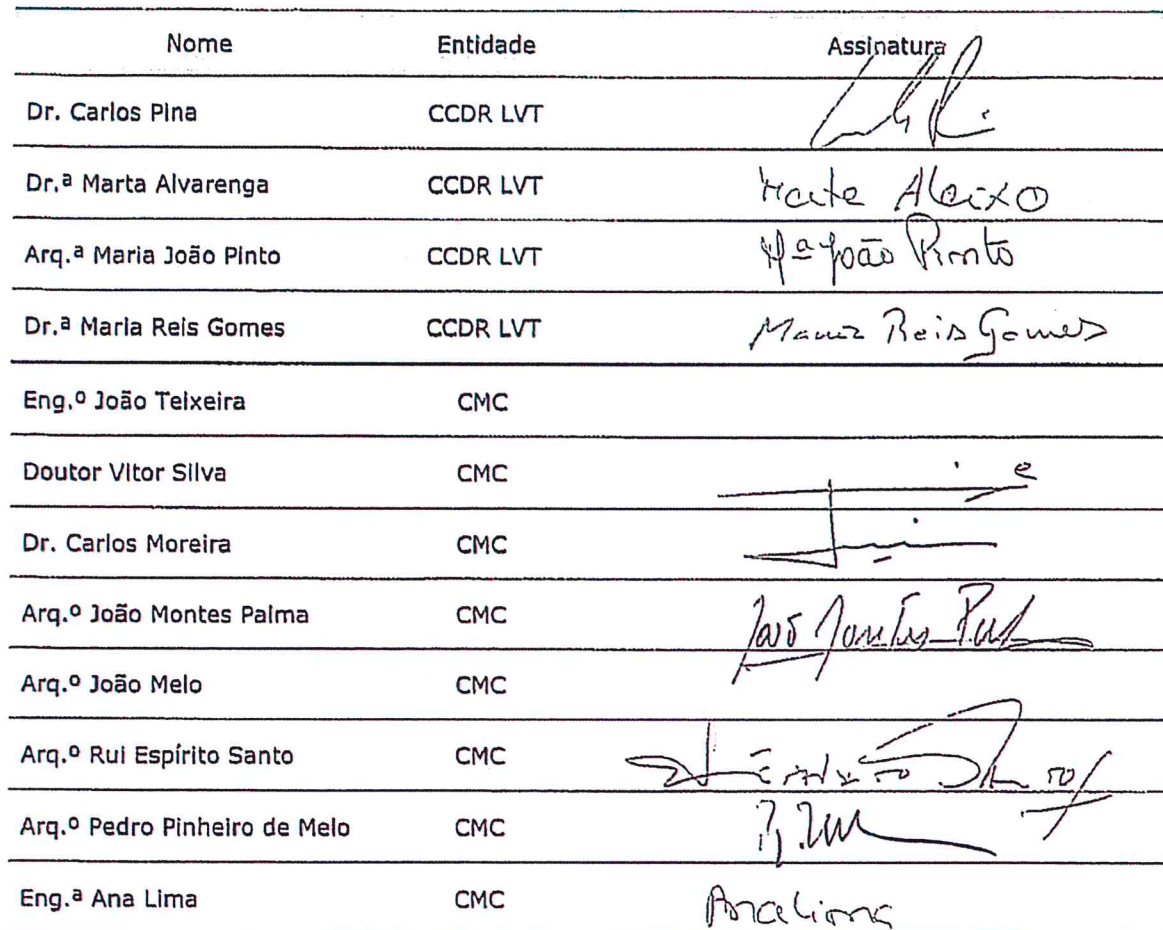 Nome Entidade Assinatura
Dr. Carlos Pina CCDR LVT
Dr.ª Marta Alvarenga CCDR LVT Marta Aleixo
Arq.ª Maria João Pinto CCDR LVT Mª João Pinto
Dr.ª Maria Reis Gomes CCDR LVT Maria Reis Gomes
Eng.º João Teixeira CMC
Doutor Vitor Silva CMC
Dr. Carlos Moreira CMC
Arq.º João Montes Palma CMC João Montes Pal
Arq.º João Melo CMC
Arq.º Rui Espírito Santo CMC
Arq.º Pedro Pinheiro de Melo CMC
Eng.ª Ana Lima CMC Ana Lima